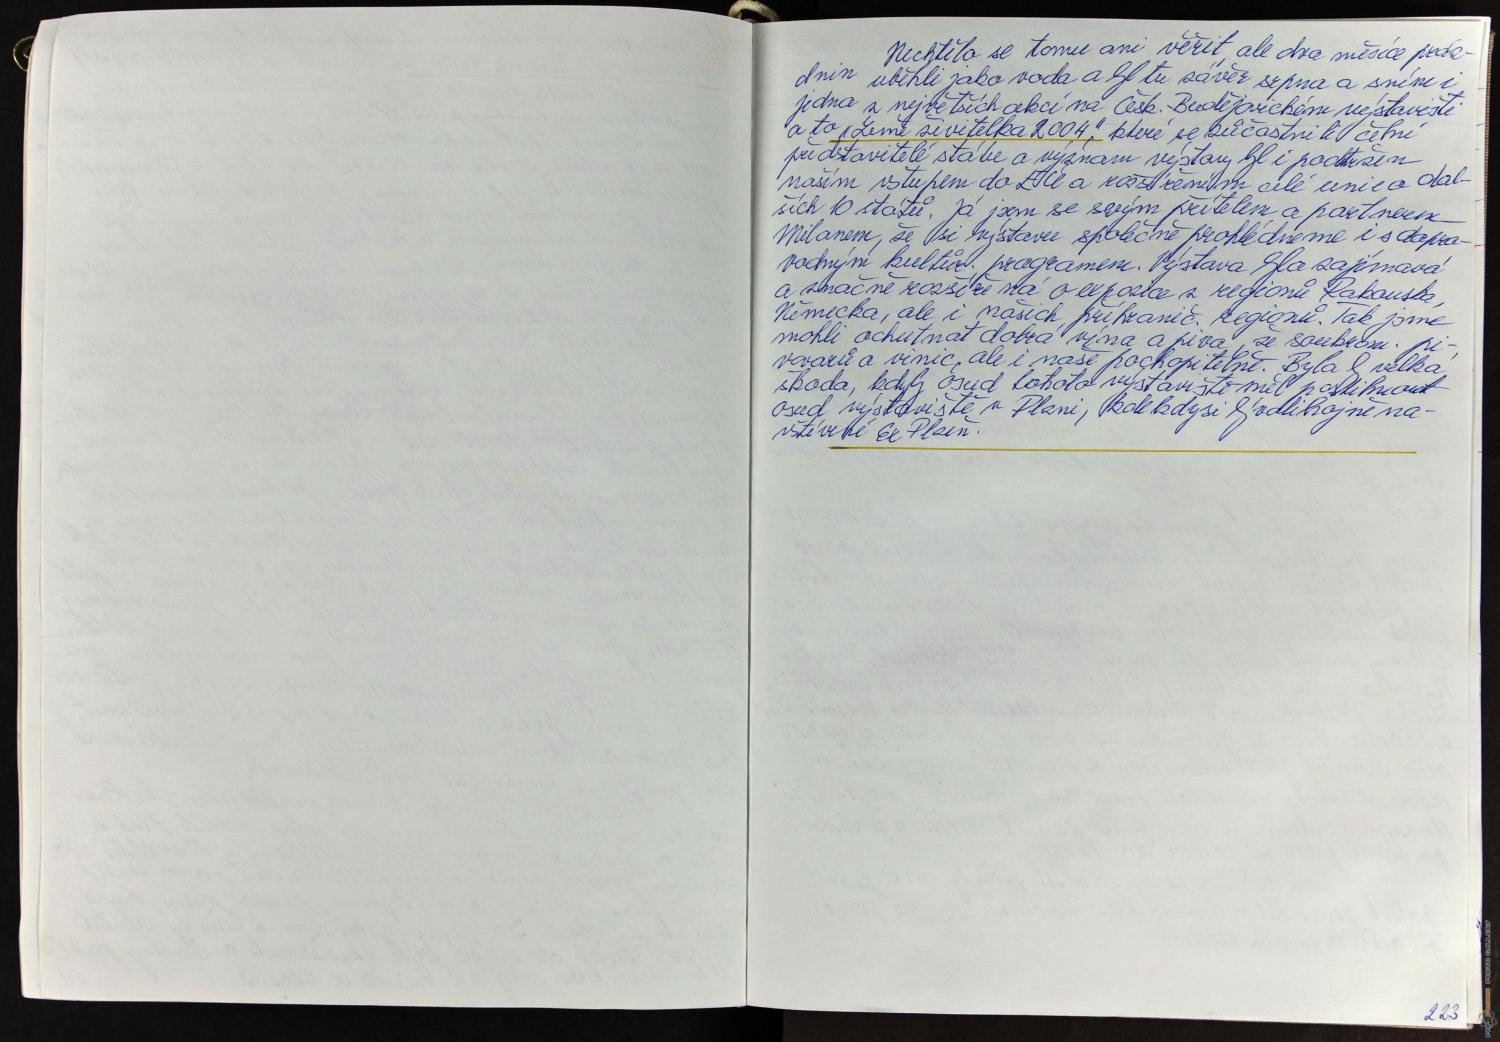 Nechtělo se tomu ani věřit, ale dva měsíce prázd-
dnin uběhli jako voda a byl tu závěr srpna a s ním i
jedna z největších akcí na Česk. Budějovickém výstavišti
a to „Země živitelka 2004“, které se zúčastnili čelní
představitelé státu a význam výstavy byl i podtržen
naším vstupem do EU a rozšířením celé unie o dal-
ších 10 států. Já jsem se svým přítelem a partnerem
Milanem, že si výstavu společně prohlédneme i s dopro-
vodným kultůr. programem. Výstava byla zajímavá
a značně rozšířená o expozice z regionů Rakouska,
Německa, ale i našich příhranič. regionů. Tak jsme
mohli ochutnat dobrá vína a piva, ze soukrom. pi-
vovarů a vinic, ale i naše pochopitelně. Byla by velká
škoda, kdyby osud tohoto výstaviště měl postihnout
osud výstaviště v Plzni, kde kdysi byl na-
vštívené Ex Plzeň.
223